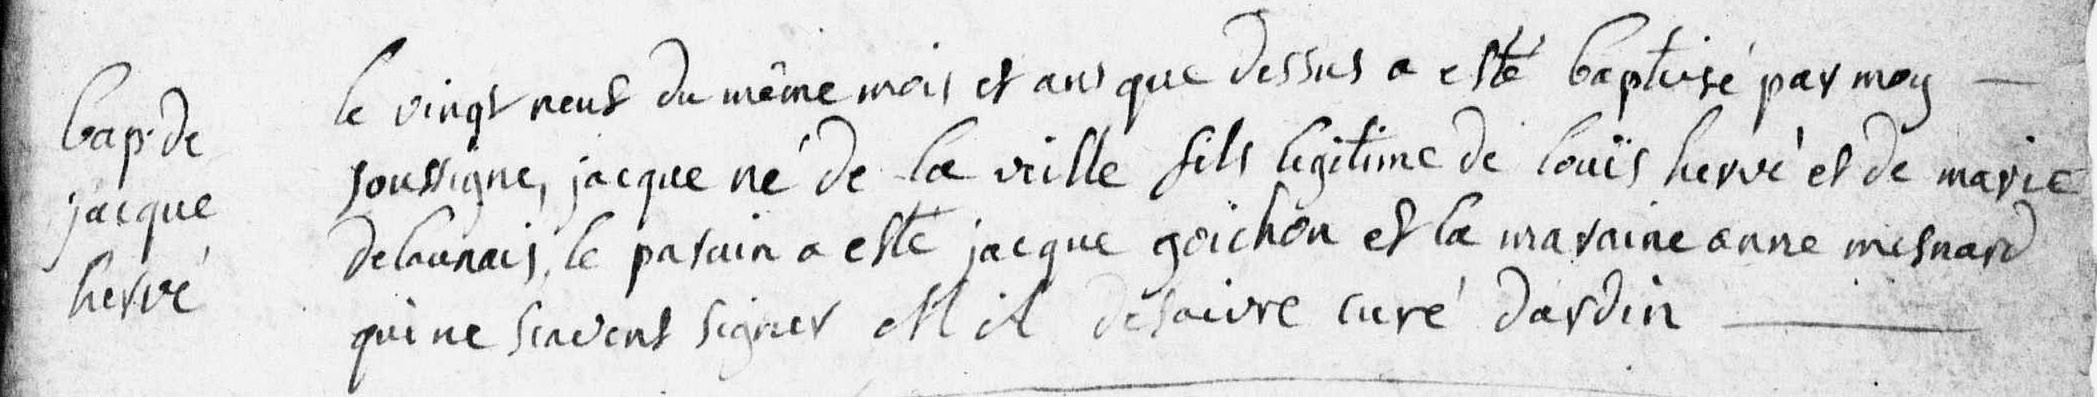 bap. de
jacque
hervé
le vingt neuf du même mois et ans que dessus a esté baptisé par moy —
soussigne, jacque né de la veille fils legitime de louïs hervé et de marie
delaunais, le parain a esté jacque goichon et la maraine anne mesnard
qui ne scavent signer M A desaivre curé dardin —